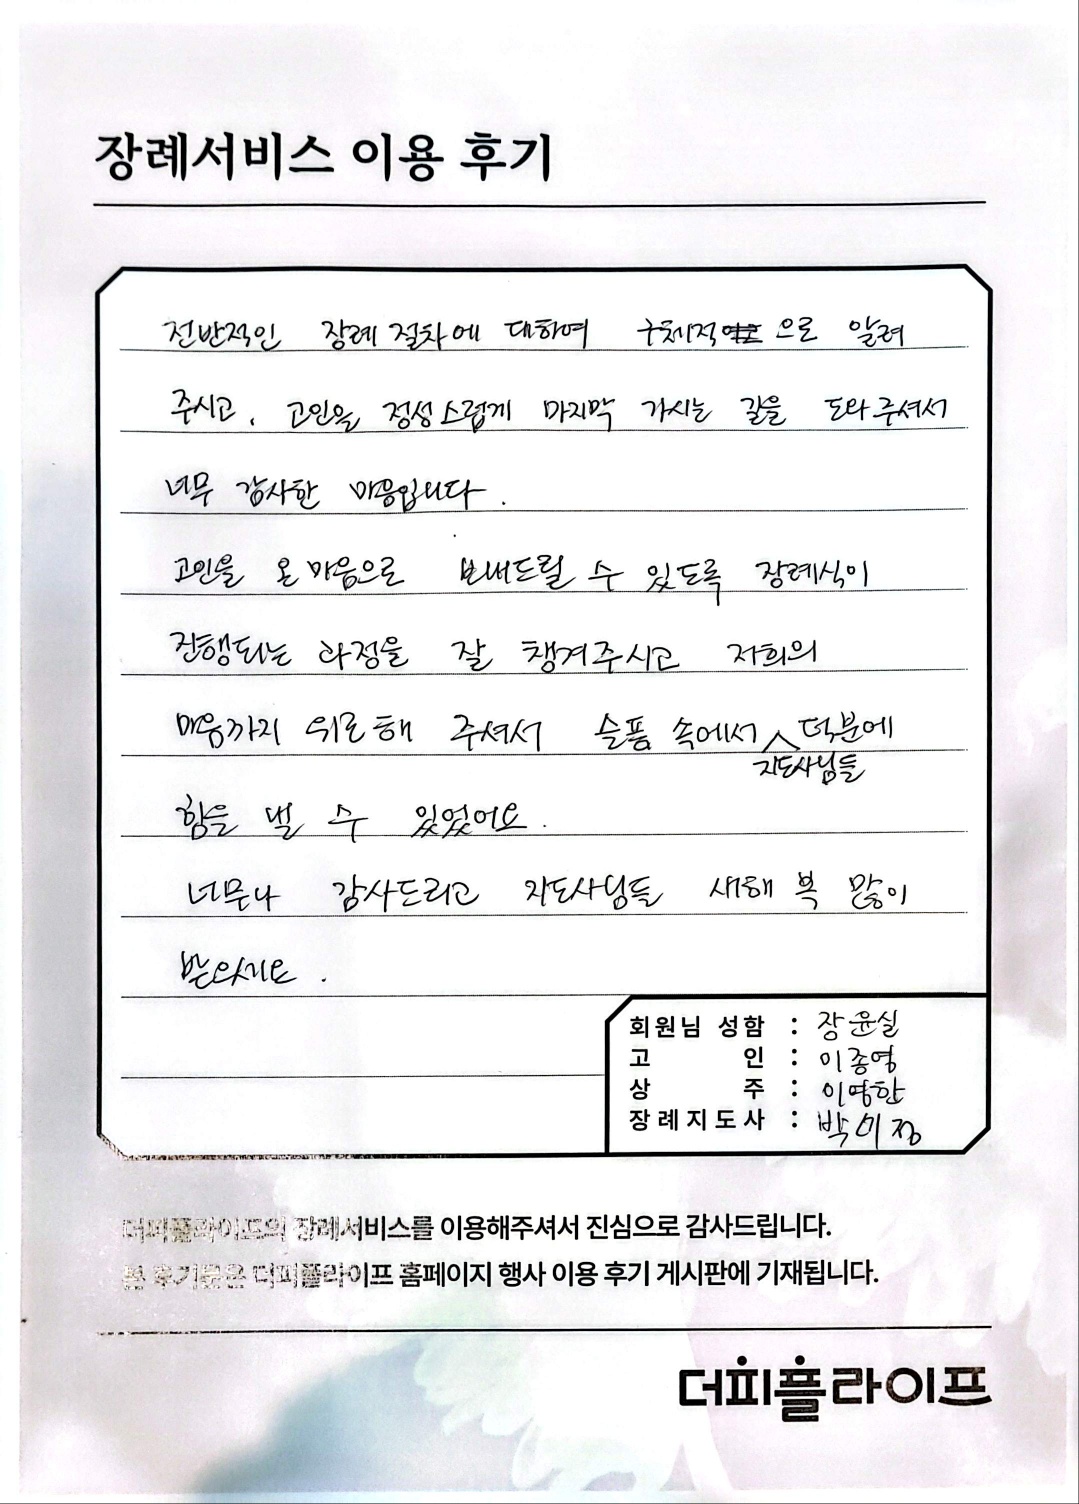 장례서비스 이용 후기
전반적인 장례 절차에 대하여 구체적 으로 알려
주시고, 고인을 정성스럽게 마지막 가시는 길을 도와주셔서
너무 감사한 마음입니다.
고인을 온 마음으로 보내드릴 수 있도록 장례식이
진행되는 과정을 잘 챙겨주시고 저희의
마음까지 위로해 주셔서 슬픔 속에서 덕분에
지도사님들
힘을 낼 수 있었어요.
너무나 감사드리고 지도사님들 새해 복 많이
받으세요.
회원님 성함 : 장윤실
고 인 : 이종영
상 주 : 이영한
장례지도사 : 박미정
더피플라이프의 장례서비스를 이용해주셔서 진심으로 감사드립니다.
본 후기글은 더피플라이프 홈페이지 행사 이용 후기 게시판에 기재됩니다.
더피플라이프